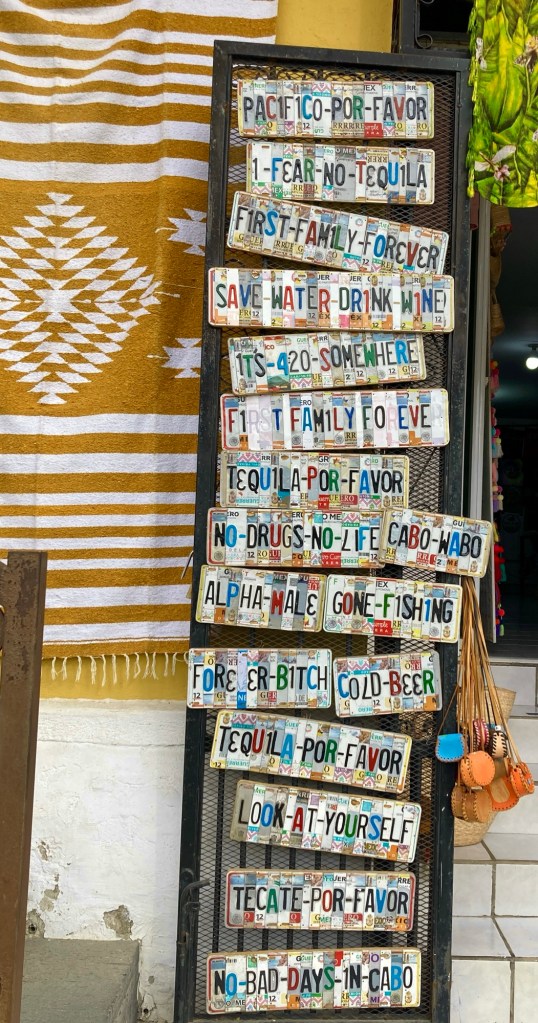 PAC1F1CO-POR-FAVOR
1-FEAR-NO-TEQU1LA
F1RST-FAM1LY-FOREVER
SAVE-WATER-DR1NK-W1NE
1TS-420-SOMEWHERE
F1RST FAM1LY FOREVE
TEQU1LA-POR-FAVOR
NO-DRUGS-NO-LIFE
CABO-WABO
ALPHA-MALE
GONE-F1SH1NG
FOREVER-B1TCH
COLD-BEER
TEQU1LA-POR-FAVOR
LOOK-AT-YOURSELF
TECATE-POR-FAVOR
NO-BAD-DAYS-1N-CABO